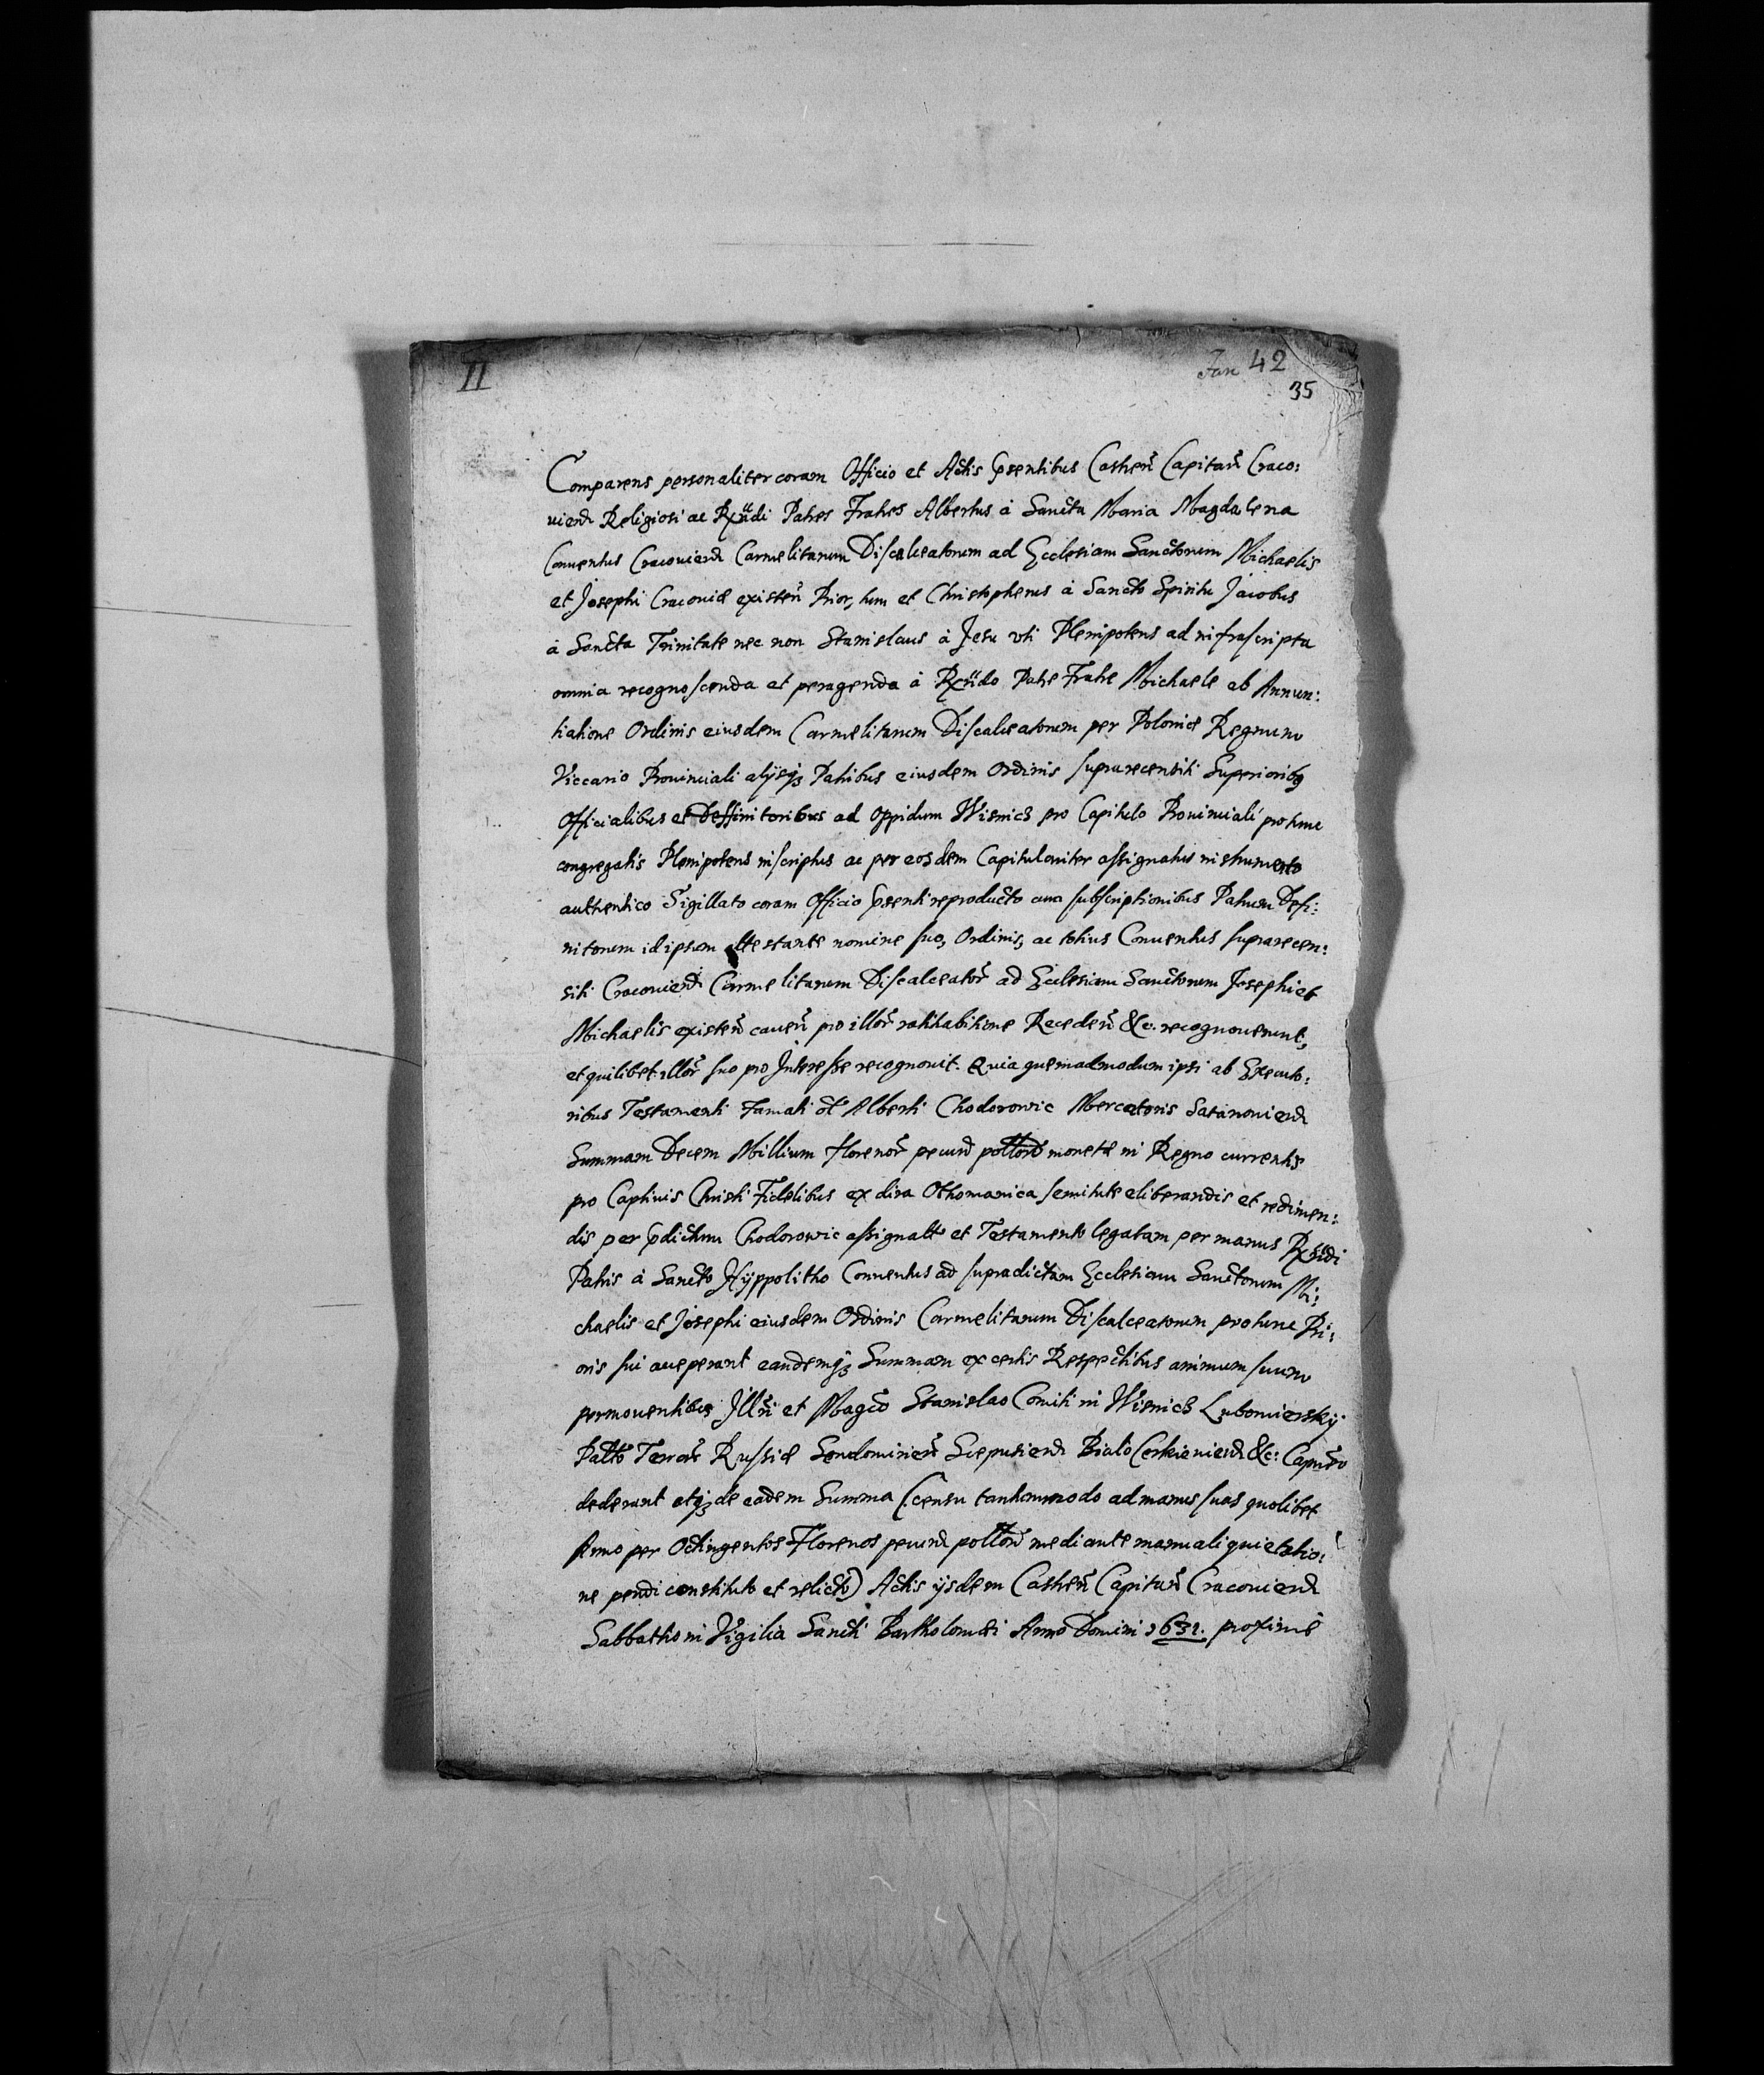 II
Fan 42
35
Comparens personaliter coram Officio et Actis pñsentibus Castreñ Capitañ Craco:
vieñ Religiosi ac Rñdi Patres Fratres Albertus à Sancta Maria Magdalena
Conuentus Cracouieñ Carmelitarum Discalceatorum ad Ecclesiam Sanctorum Michaelis
et Josephi Cracouiæ existeñ Prior, tum et Christophorus à Sancto Spiritu Jacobus
à Sancta Trinitate nec non Stanislaus à Jesu vti Plenipotens ad infrascripta
omnia recognoscenda et peragenda à Rñdo Patre Fratre Michaele ab Annun:
tiatione Ordinis eiusdem Carmelitarum Discalceatorum per Poloniæ Regnum
Viccario Prouinciali alijsq3 Patribus eiusdem Ordinis suprarecensiti Superiorib9
Officialibus et Deffinitoribus ad Oppidum Wisnicz pro Capitulo Prouinciali protunc
congregatis Plenipotens inscriptus ac per eosdem Capitulariter assignatus instrumento
authentico Sigillato coram Officio pñsenti reproducto cum subscriptionibus Patrum Defi:
nitorum id ipsum attestante nomine suo, Ordinis, ac totius Conuentus suprarecen:
siti Cracouieñ Carmelitarum Discalceator̃ ad Ecclesiam Sanctorum Josephi et
Michaelis existeñ caueñ pro illor̃ ratihabitione Recedeñ &c. recognouerunt,
et quilibet illor̃ suo pro Interesse recognouit. Quia quemadmodum ipsi ab Executo:
ribus Testamenti Famati ol̃ Alberti Chodorowic Mercatoris Satanouieñ
Summam Decem Millium florenor̃ pecuñ polloñ monetæ in Regno currentis
pro Captiuis Christi Fidelibus ex dira Othomanica seruitute eliberandis et redimen:
dis per p̃dictum Chodorowic assignatt et Testamento legatam per manus Rñdi
Patris à Sancto Hyppolitho Conuentus ad supradictam Ecclesiam Sanctorum Mi:
chaelis et Josephi eiusdem Ordinis Carmelitarum Discalceatorum protunc Pri:
oris sui acceperant eandemq3 Summam ex certis Respectibus animum suum
permouentibus Jllr̃i et Magcõ Stanislao Comiti in Wisnicz Lubomiersky
Palto Terrar̃ Russiæ Sendomirieñ Scepusieñ Bialo Cerkieuieñ &c: Capñeo
dederant etq3 de eadem Summa (censu tantummodo ad manus suas quolibet
Anno per Octingentos Florenos pecuñ polloñ mediante manuali quietatio:
ne pendi constituto et relicto) Actis ijsdem Castreñ Capitañ Cracouieñ
Sabbatho in Vigilia Sancti Bartholomæi Anno Domini 1631. proximè